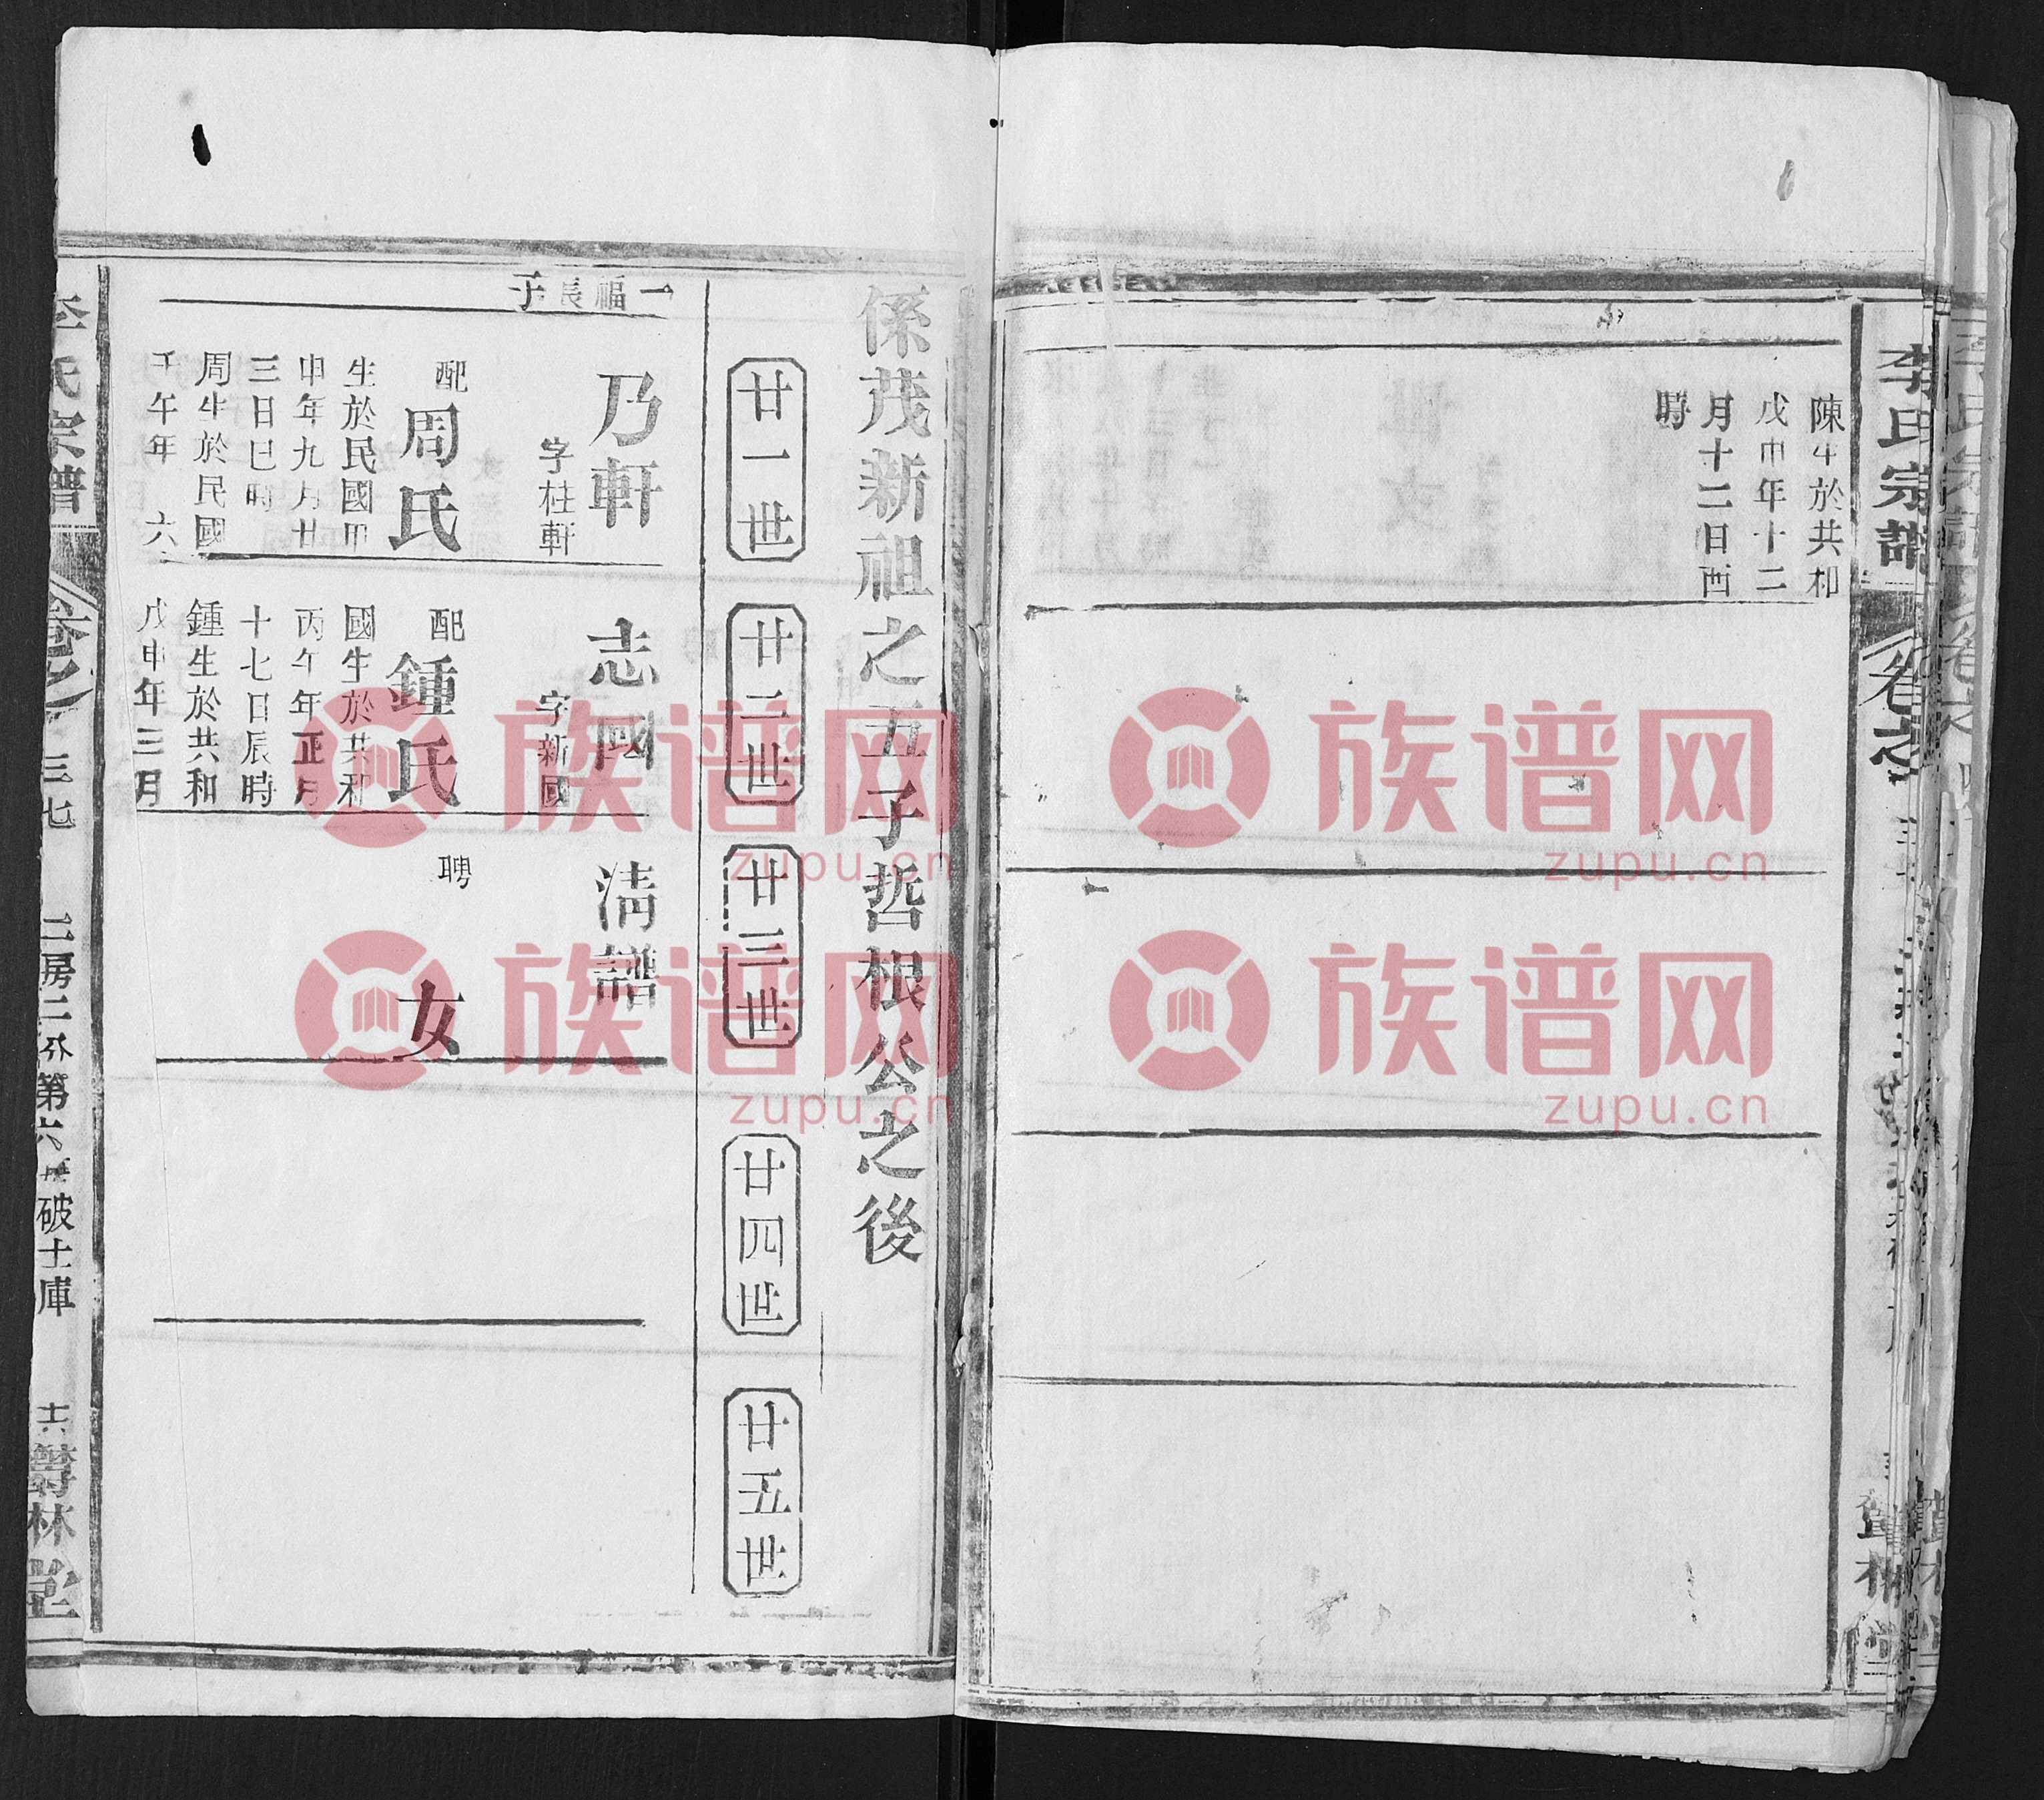 李氏宗譜
陳生於共和
戊申年十二
月十二日酉
時
係茂新祖之五子哲根公之後
廿一世
廿二世
廿三世
廿四世
廿五世
一福長子
乃軒
字柱軒
配
周氏
生於民國四
申年九月廿
三日巳時
周生於民國
壬午年 六
志國
字新國
配
鍾氏
國生於共和
丙午年正月
十七日辰時
鍾生於共和
戊申年三月
清譜
聘
女
李氏宗譜
三七
破土庫
族谱网
zupu.cn
族谱网
zupu.cn
族谱网
zupu.cn
族谱网
zupu.cn